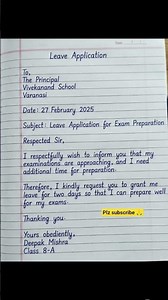 Leave Application
To,
The Principal
Vivekanand School
Varanasi
Date: 27 February 2025
Subject: Leave Application for Exam Preparation
Respected Sir,
I respectfully wish to inform you that my
examinations are approaching, and I need
additional time for preparation.
Therefore, I kindly request you to grant me
leave for two days so that I can prepare well
for my exams.
Plz subscribe
Thanking you.
Yours obediently,
Deepak Mishra
Class 8-A